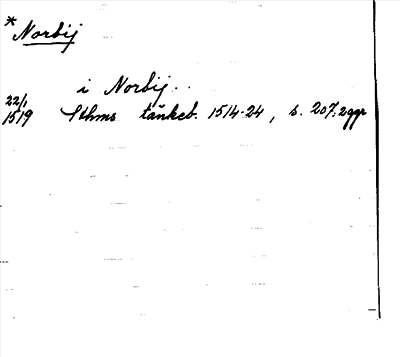 * Norbij
i Norbij..
22/1 1519 Sthms tänkeb. 1514-24, s. 207; 2ggr